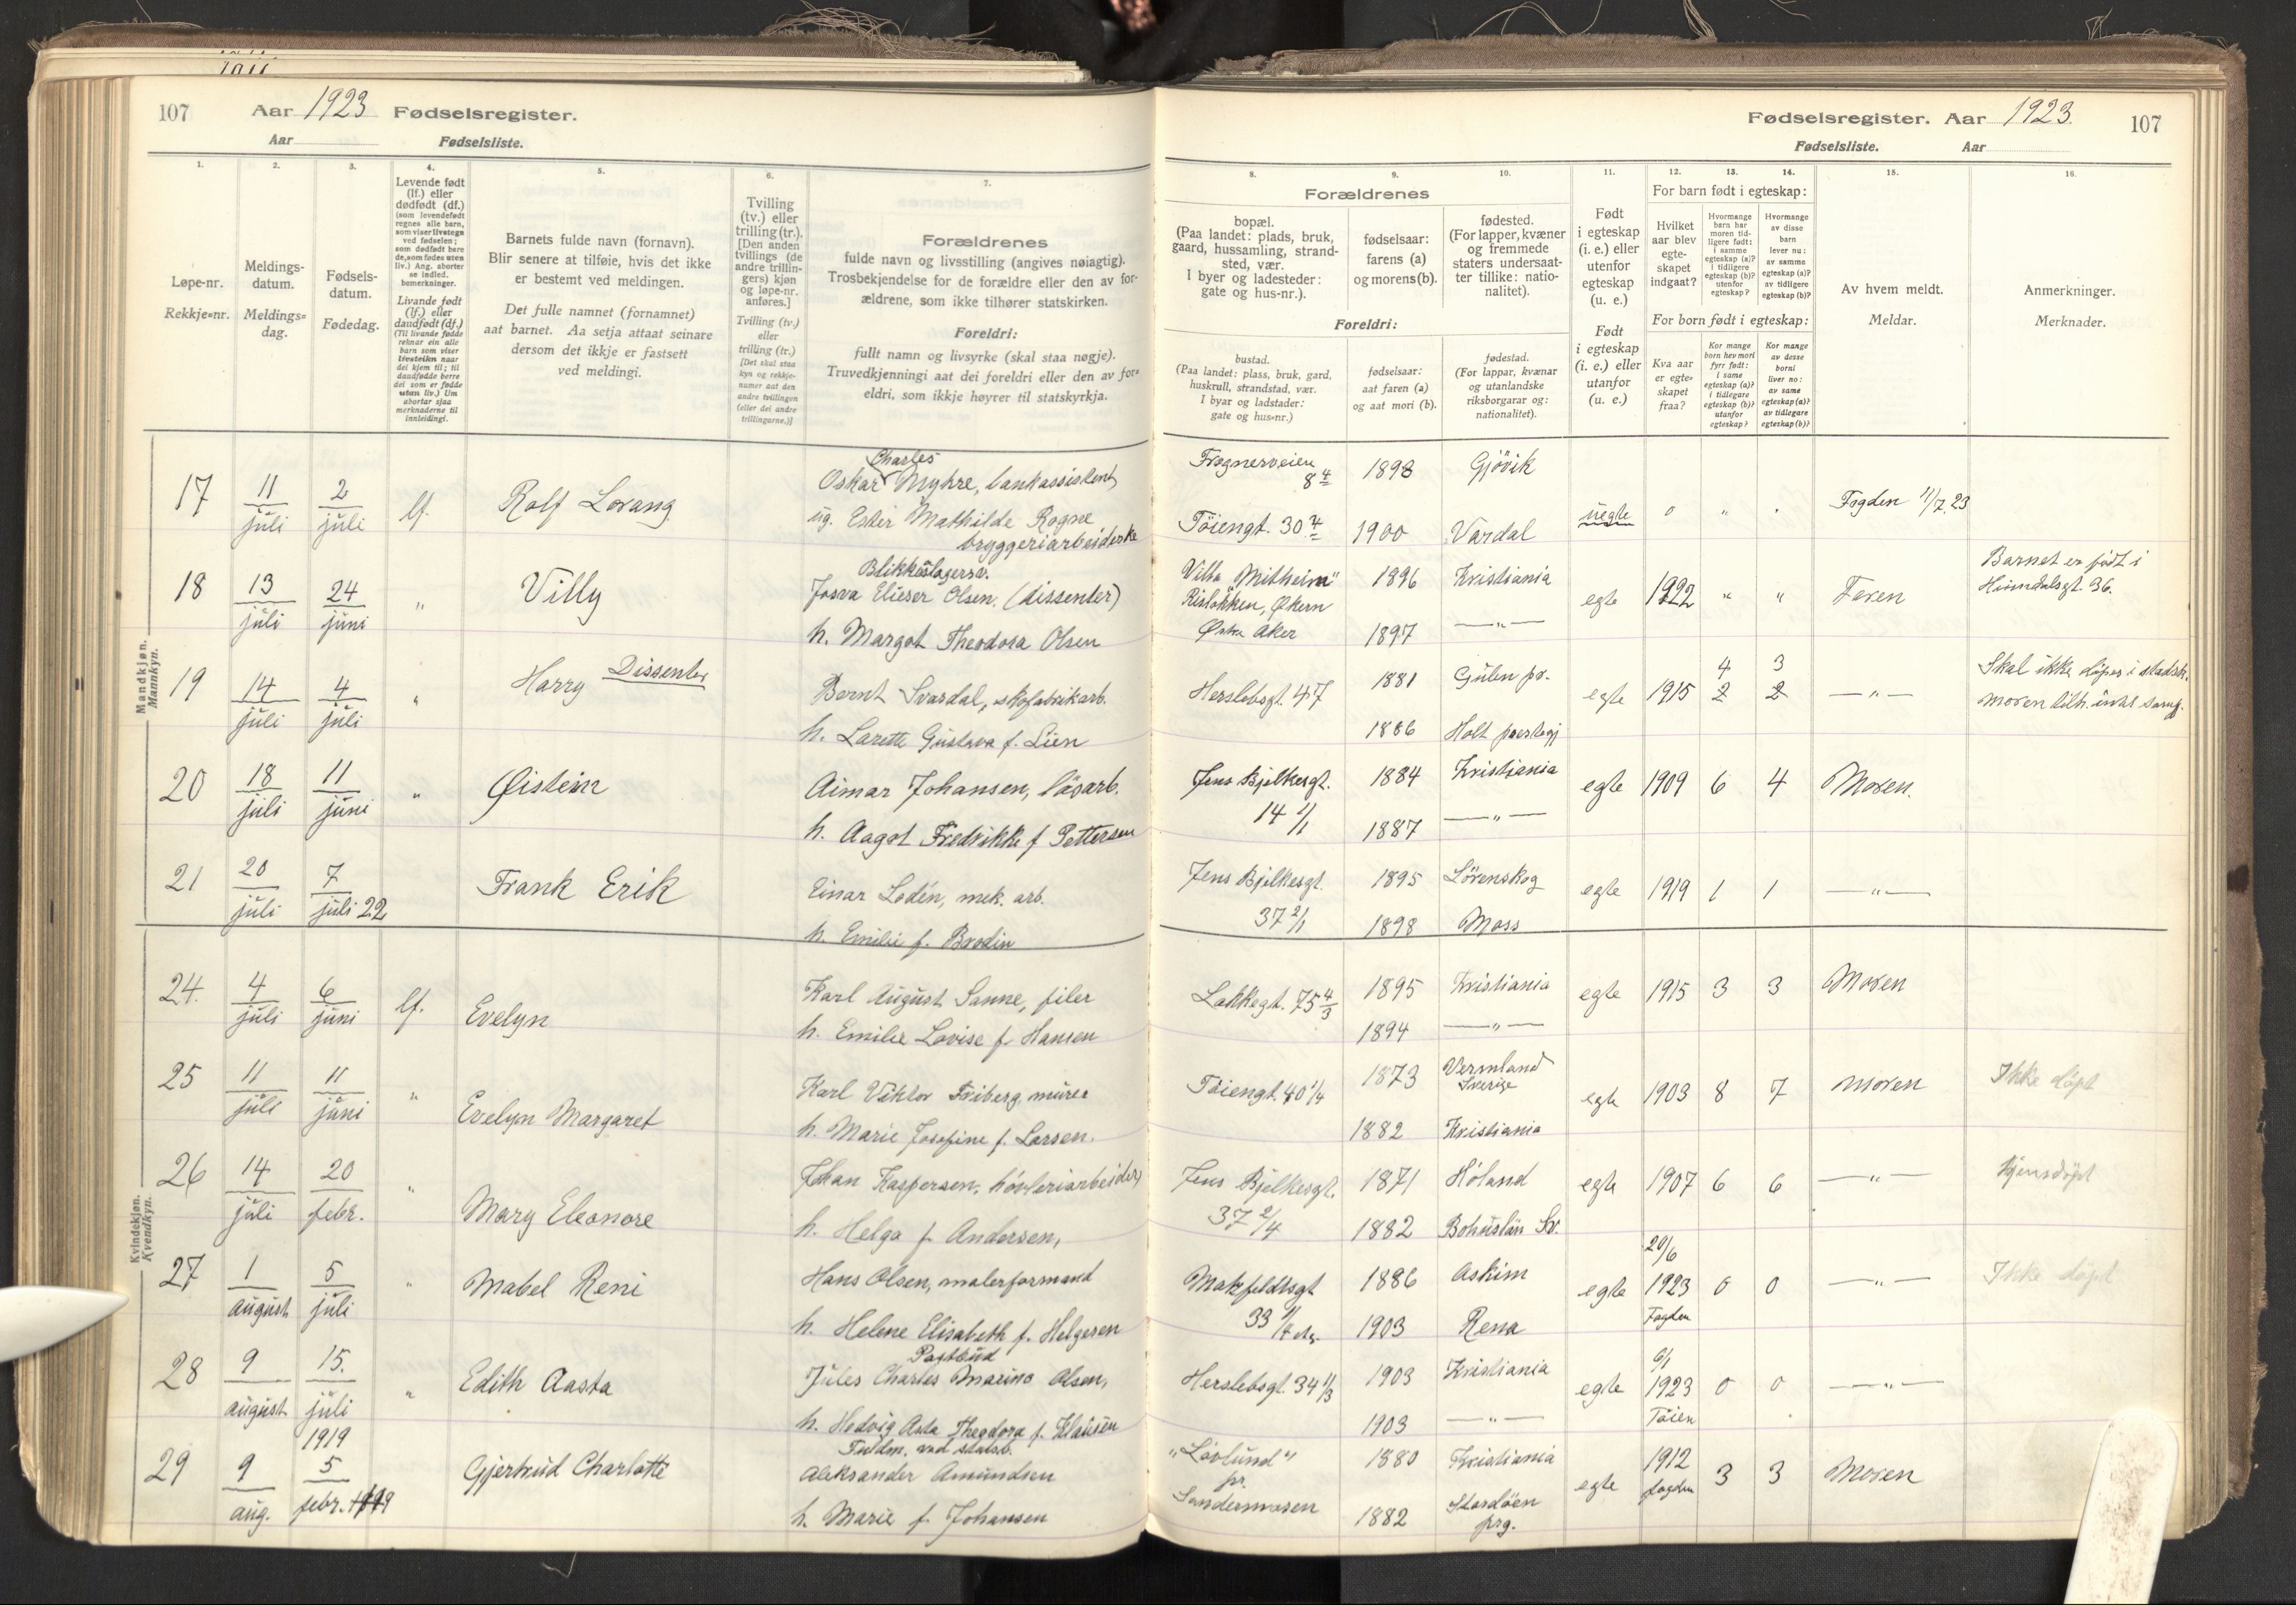 107 Aar 1923 Fødselsregister.
Aar Fødselsliste.
Fødselsregister. Aar 1923. 107
Fødselsliste. Aar
1.
Løpe-nr.
Rekkje=nr.
2.
Meldings-
datum.
Meldings=
dag.
3.
Fødsels-
datum.
Fødedag.
4.
Levende født
(lf.) eller
dødfødt (df.)
(som levendefødt
regnes alle barn,
som viser livstegn
ved fødselen;
som dødfødt bare
de, som fødes uten
liv.) Ang. aborter
se indled.
bemerkninger.
Livande født
(lf.) eller
daudfødt (df.)
(Til livande fødde
reknar ein alle
barn som viser
livsteikn naar
dei kjem til; til
daudfødde berre
dei som er fødde
utan liv.) Um
abortar sjaa
merknaderne til
innleidingi.
5.
Barnets fulde navn (fornavn).
Blir senere at tilføie, hvis det ikke
er bestemt ved meldingen.
Det fulle namnet (fornamnet)
aat barnet. Aa setja attaat seinare
dersom det ikkje er fastsett
ved meldingi.
6.
Tvilling
(tv.) eller
trilling (tr.).
[Den anden
tvillings (de
andre trillin-
gers) kjøn
og løpe-nr.
anføres.]
Tvilling (tv.)
eller
trilling (tr.)
[Det skal staa
kyn og rekkje-
numer aat den
andre tvillingen
(eller dei andre
trillingarne.)]
7.
Forældrenes
fulde navn og livsstilling (angives nøiagtig).
Trosbekjendelse for de forældre eller den av for-
ældrene, som ikke tilhører statskirken.
Foreldri:
fullt namn og livsyrke (skal staa nøgje).
Truvedkjenningi aat dei foreldri eller den av for=
eldri, som ikkje høyrer til statskyrkja.
8. 9. 10.
Forældrenes
bopæl.
(Paa landet: plads, bruk,
gaard, hussamling, strand-
sted, vær.
I byer og ladesteder:
gate og hus-nr.).
fødselsaar:
farens (a)
og morens (b).
fødested.
(For lapper, kvæner
og fremmede
staters undersaat-
ter tillike: natio-
nalitet).
Foreldri:
bustad.
(Paa landet: plass, bruk, gard,
huskrull, strandstad, vær.
I byar og ladstader:
gate og hus=nr.)
fødselsaar:
aat faren (a)
og aat mori (b).
fødestad.
(For lappar, kvænar
og utanlandske
riksborgarar og:
nationalitet).
11.
Født
i egteskap
(i. e.) eller
utenfor
egteskap
(u. e.)
Født
i egteskap
(i. e.) eller
utanfor
(u. e.)
12. 13. 14.
For barn født i egteskap:
Hvilket
aar blev
egte-
skapet
indgaat?
Hvormange
barn har
moren tid-
ligere født:
i samme
egteskap (a)?
i tidligere
egteskap (b)?
utenfor
egteskap?
Hvormange
av disse
barn
lever nu:
av samme
egteskap (a)?
av tidligere
egteskap (b)?
For born født i egteskap:
Kva aar
er egte=
skapet
fraa?
Kor mange
born hev mori
fyrr født:
i same
egteskap (a)?
i tidlegare
egteskap (b)?
utanfor
egteskap?
Kor mange
av desse
borni
liver no:
av same
egteskap (a)?
av tidlegare
egteskap (b)?
15.
Av hvem meldt.
Meldar.
16.
Anmerkninger.
Merknader.
Mandkjøn.
Mannkyn.
17 11 juli 2 juli lf. Rolf Lorang
Charles
Oskar Myhre, bankassistent
ug. Ester Mathilde Rogne
bryggeriarbeiderske
Frognerveien 8 4 1898 Gjövik
Töiengt. 30 4 1900 Vardal
uegte 0 " " Fogden 11/7 23
18 13 juli 24 juni " Villy
Blikkslagersv.
Josva Elieser Olsen. (dissenter)
h. Margot Theodora Olsen
Villa "Mitheim" 1896 Kristiania
Risløkken, Økern
Østre Aker 1897 — " —
egte 1922 " " Faren
Barnet er født i
Heimdalsgt. 36.
19 14 juli 4 juli " Harry Dissenter
Bernt Svardal, skofabrikarb.
h. Larette Gustava f. Lien
Herslebsgt. 47 1881 Gulen pr.
1886 Holt prestegj
egte 1915 4 2 3 2 — " —
Skal ikke døpes i statsk.
Moren tilh. samf.
20 18 juli 11 juni " Øistein
Aimar Johansen, løsarb.
h. Aagot Fredrikke f Pettersen
Jens Bjelkesgt. 1884 Kristiania
14 1/1 1887 — " —
egte 1909 6 4 Moren.
21 20 juli 7 juli 22 Frank Erik
Einar Lodén, mek. arb.
h. Emilie f. Brodin
Jens Bjelkesgt. 1895 Lörenskog
37 2/1 1898 Moss
egte 1919 1 1 — " —
Kvindekjøn.
Kvendkyn.
24. 4 juli 6 juni lf. Evelyn
Karl August Sanne, filer
h. Emilie Lovise f Hansen
Lakkegt. 75 4/3 1895 Kristiania
1894 — " —
egte 1915 3 3 Moren
25 11 juli 11 juni " Evelyn Margaret
Karl Viktor Friberg, murer
h. Marie Josefine f. Larsen.
Töiengt. 40 1/4 1873 Vermland
Sverige
1882 Kristiania
egte 1903 8 7 Moren Ikke døpt
26 14 juli 20 febr. " Mary Eleonore
Johan Kaspersen, høvleriarbeider
h. Helga f. Andersen,
Jens Bjelkesgt. 1871 Høland
37 2/4 1882 Bohuslän Sv.
egte 1907 6 6 — " — Hjemdøpt
27 1 august 5 juli " Mabel Reni
Hans Olsen, malerformand
h. Helene Elisabeth f. Helgesen
Motzfeldtsgt 1886 Askim
33 1903 Rena
egte 20/6 1923 Fogden 0 0 — " — Ikke døpt
28 9 august 15. juli " Edith Aasta
Postbud
Jules Charles Marino Olsen,
h. Hedvig Asta Theodora f. Klausen
Herslebsgt. 34 1/3 1903 Kristiania
1903 — " —
egte 6/1 1923 Töien 0 0 — " —
29 9 aug. 1919 5 febr. 1919 Gjertrud Charlotte
Fuldm. ved statsb.
Aleksander Amundsen
h. Marie f Johansen
"Lövlund" 1880 Kristiania
pr.
Sandermosen 1882 Stordöen
prg.
egte 1912 fogden 3 3 Moren